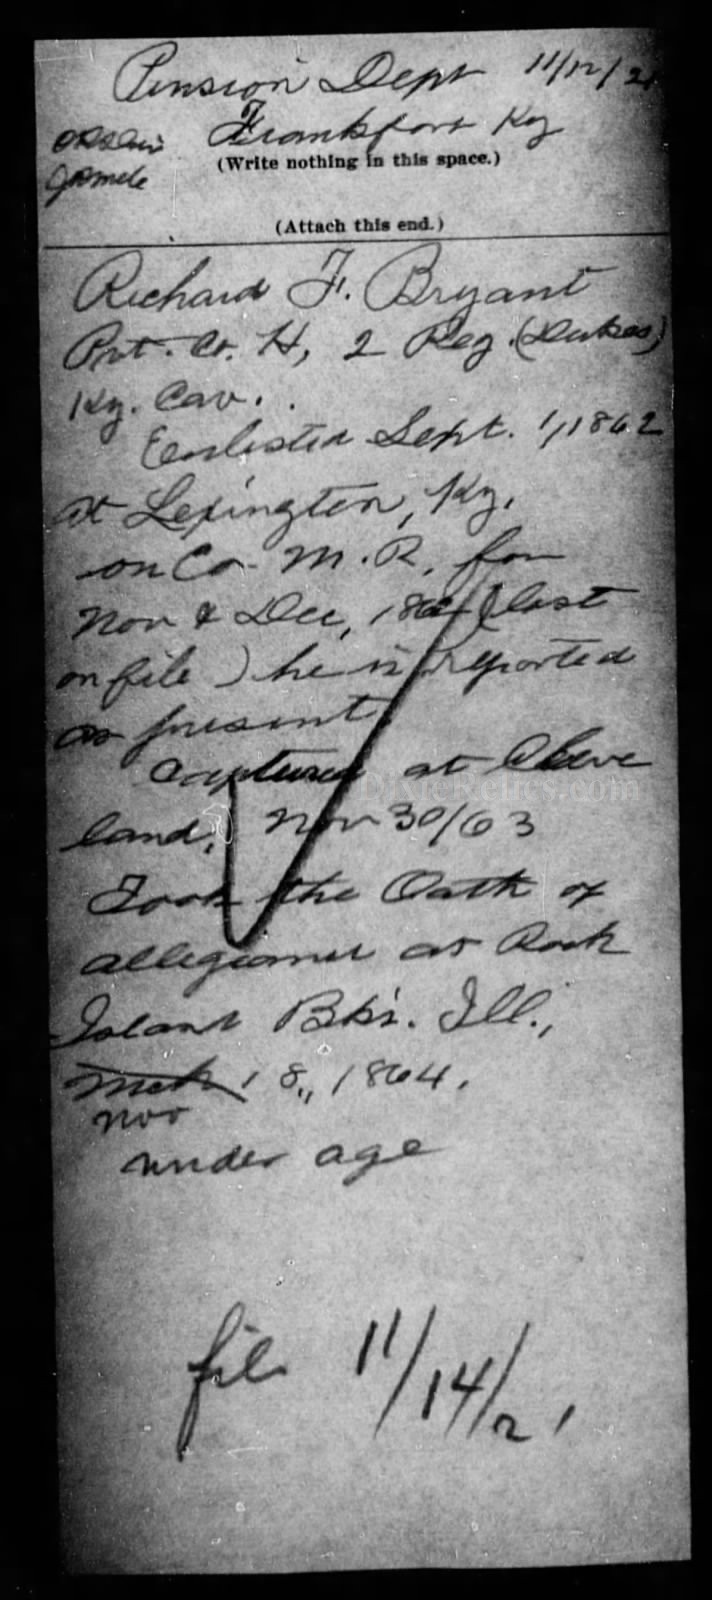 Pension Dept 11/12/21
Frankfort Ky
(Write nothing in this space.)
(Attach this end.)
Richard F. Bryant
Pvt. Co. H, 2 Reg. (Dukes)
Ky. Cav.
Enlisted Sept. 1, 1862
at Lexington, Ky.
on Co. M. R. for
Nov & Dec, 1862 (last
on file) he is reported
as present.
Captured at Cleve
land, Nov 30/63
DixieRelics.com
Took the Oath of
allegiance at Rock
Island Bks. Ill.,
Mch 18, 1864.
Nov
under age
file 11/14/21